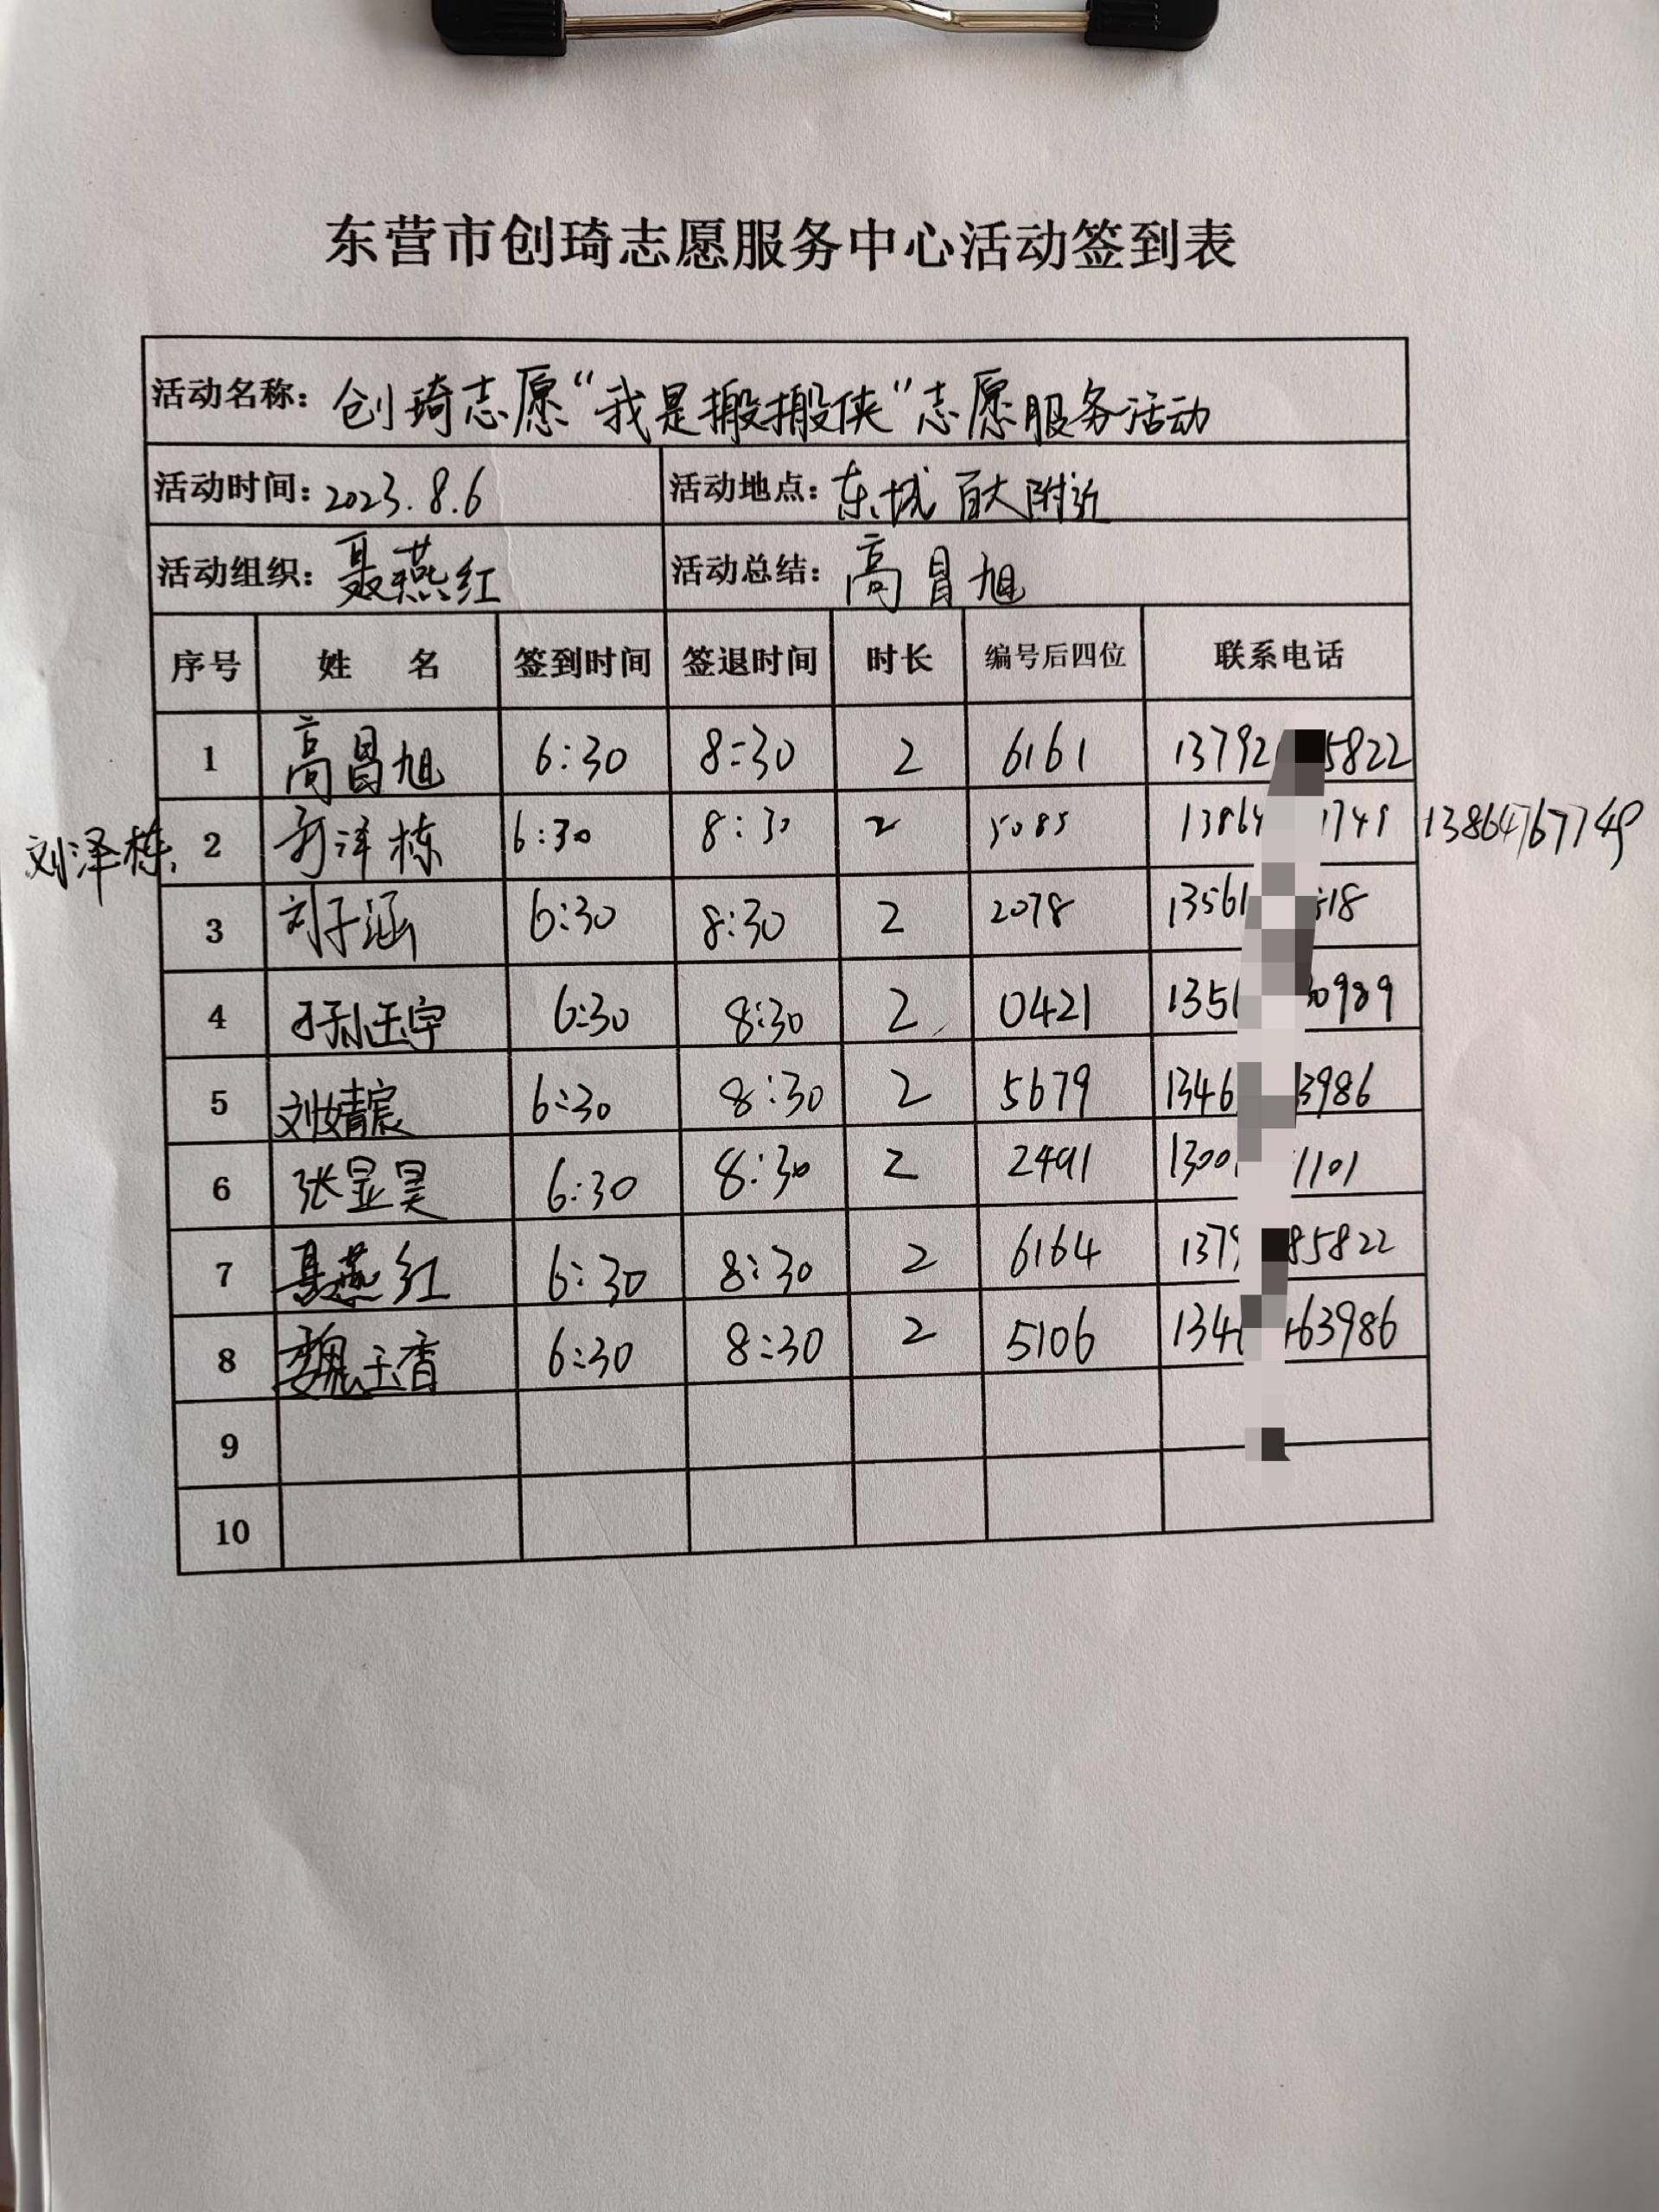 东营市创琦志愿服务中心活动签到表
活动名称：创琦志愿“我是搬搬侠”志愿服务活动
活动时间：2023.8.6 活动地点：东城百大附近
活动组织：聂燕红 活动总结：高昌旭
序号 姓 名 签到时间 签退时间 时长 编号后四位 联系电话
1 高昌旭 6:30 8:30 2 6161 13792 5822
刘泽栋 2 刘泽栋 6:30 8:30 2 5085 13864 1749 13864767749
3 刘子涵 6:30 8:30 2 2078 13561 518
4 孙玉宇 6:30 8:30 2 0421 1351 30989
5 刘婧宸 6:30 8:30 2 5679 1346 3986
6 张显昊 6:30 8:30 2 2491 1300 1101
7 聂燕红 6:30 8:30 2 6164 1379 85822
8 魏玉香 6:30 8:30 2 5106 134 63986
9
10